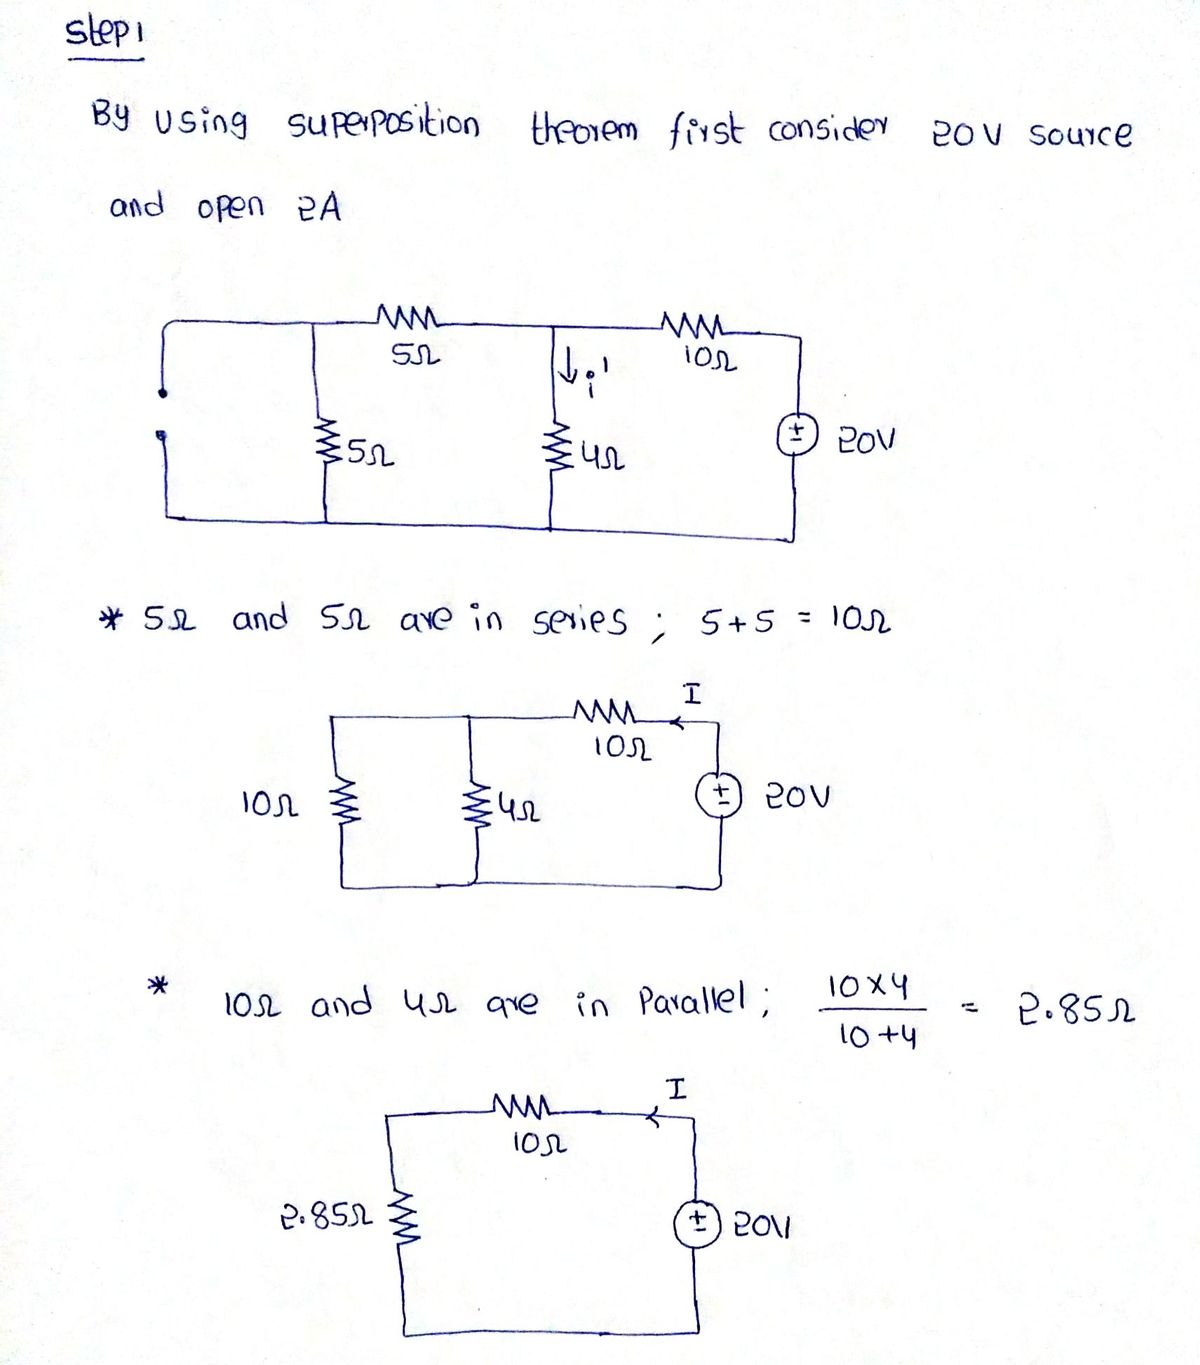 Step 1
By using superposition theorem first consider 20V source
and open 2A
5Ω
10Ω
i'
5Ω
4Ω
±
20V
* 5Ω and 5Ω are in series ; 5+5 = 10Ω
I
10Ω
10Ω
4Ω
±
20V
* 10Ω and 4Ω are in Parallel ; 10×4 / 10+4 = 2.85Ω
I
10Ω
2.85Ω
±
20V